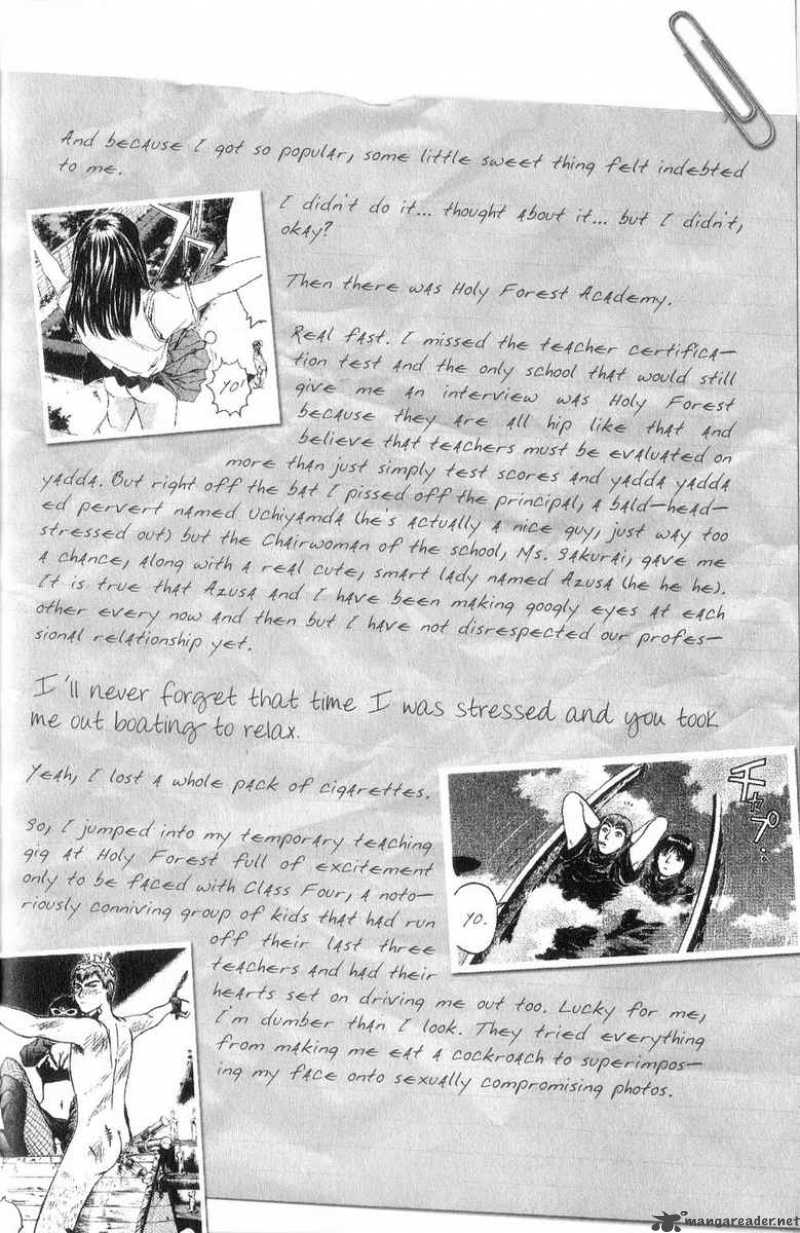 And because I got so popular, some little sweet thing felt indebted
to me.
I didn't do it... thought about it... but I didn't,
okay?
YO!
Then there was Holy Forest Academy.
Real fast. I missed the teacher certifica-
tion test and the only school that would still
give me an interview was Holy Forest
because they are all hip like that and
believe that teachers must be evaluated on
more than just simply test scores and yadda yadda
yadda. But right off the bat I pissed off the principal, a bald-head-
ed pervert named Uchiyamda (he's actually a nice guy, just way too
stressed out) but the Chairwoman of the school, Ms. Sakurai, gave me
a chance, along with a real cute, smart lady named Azusa (he he he).
It is true that Azusa and I have been making googly eyes at each
other every now and then but I have not disrespected our profes-
sional relationship yet.
I'll never forget that time I was stressed and you took
me out boating to relax.
Yeah, I lost a whole pack of cigarettes.
チャプ..
YO.
So, I jumped into my temporary teaching
gig at Holy Forest full of excitement
only to be faced with Class Four, a noto-
riously conniving group of kids that had run
off their last three
teachers and had their
hearts set on driving me out too. Lucky for me,
I'm dumber than I look. They tried everything
from making me eat a cockroach to superimpos-
ing my face onto sexually compromising photos.
mangareader.net